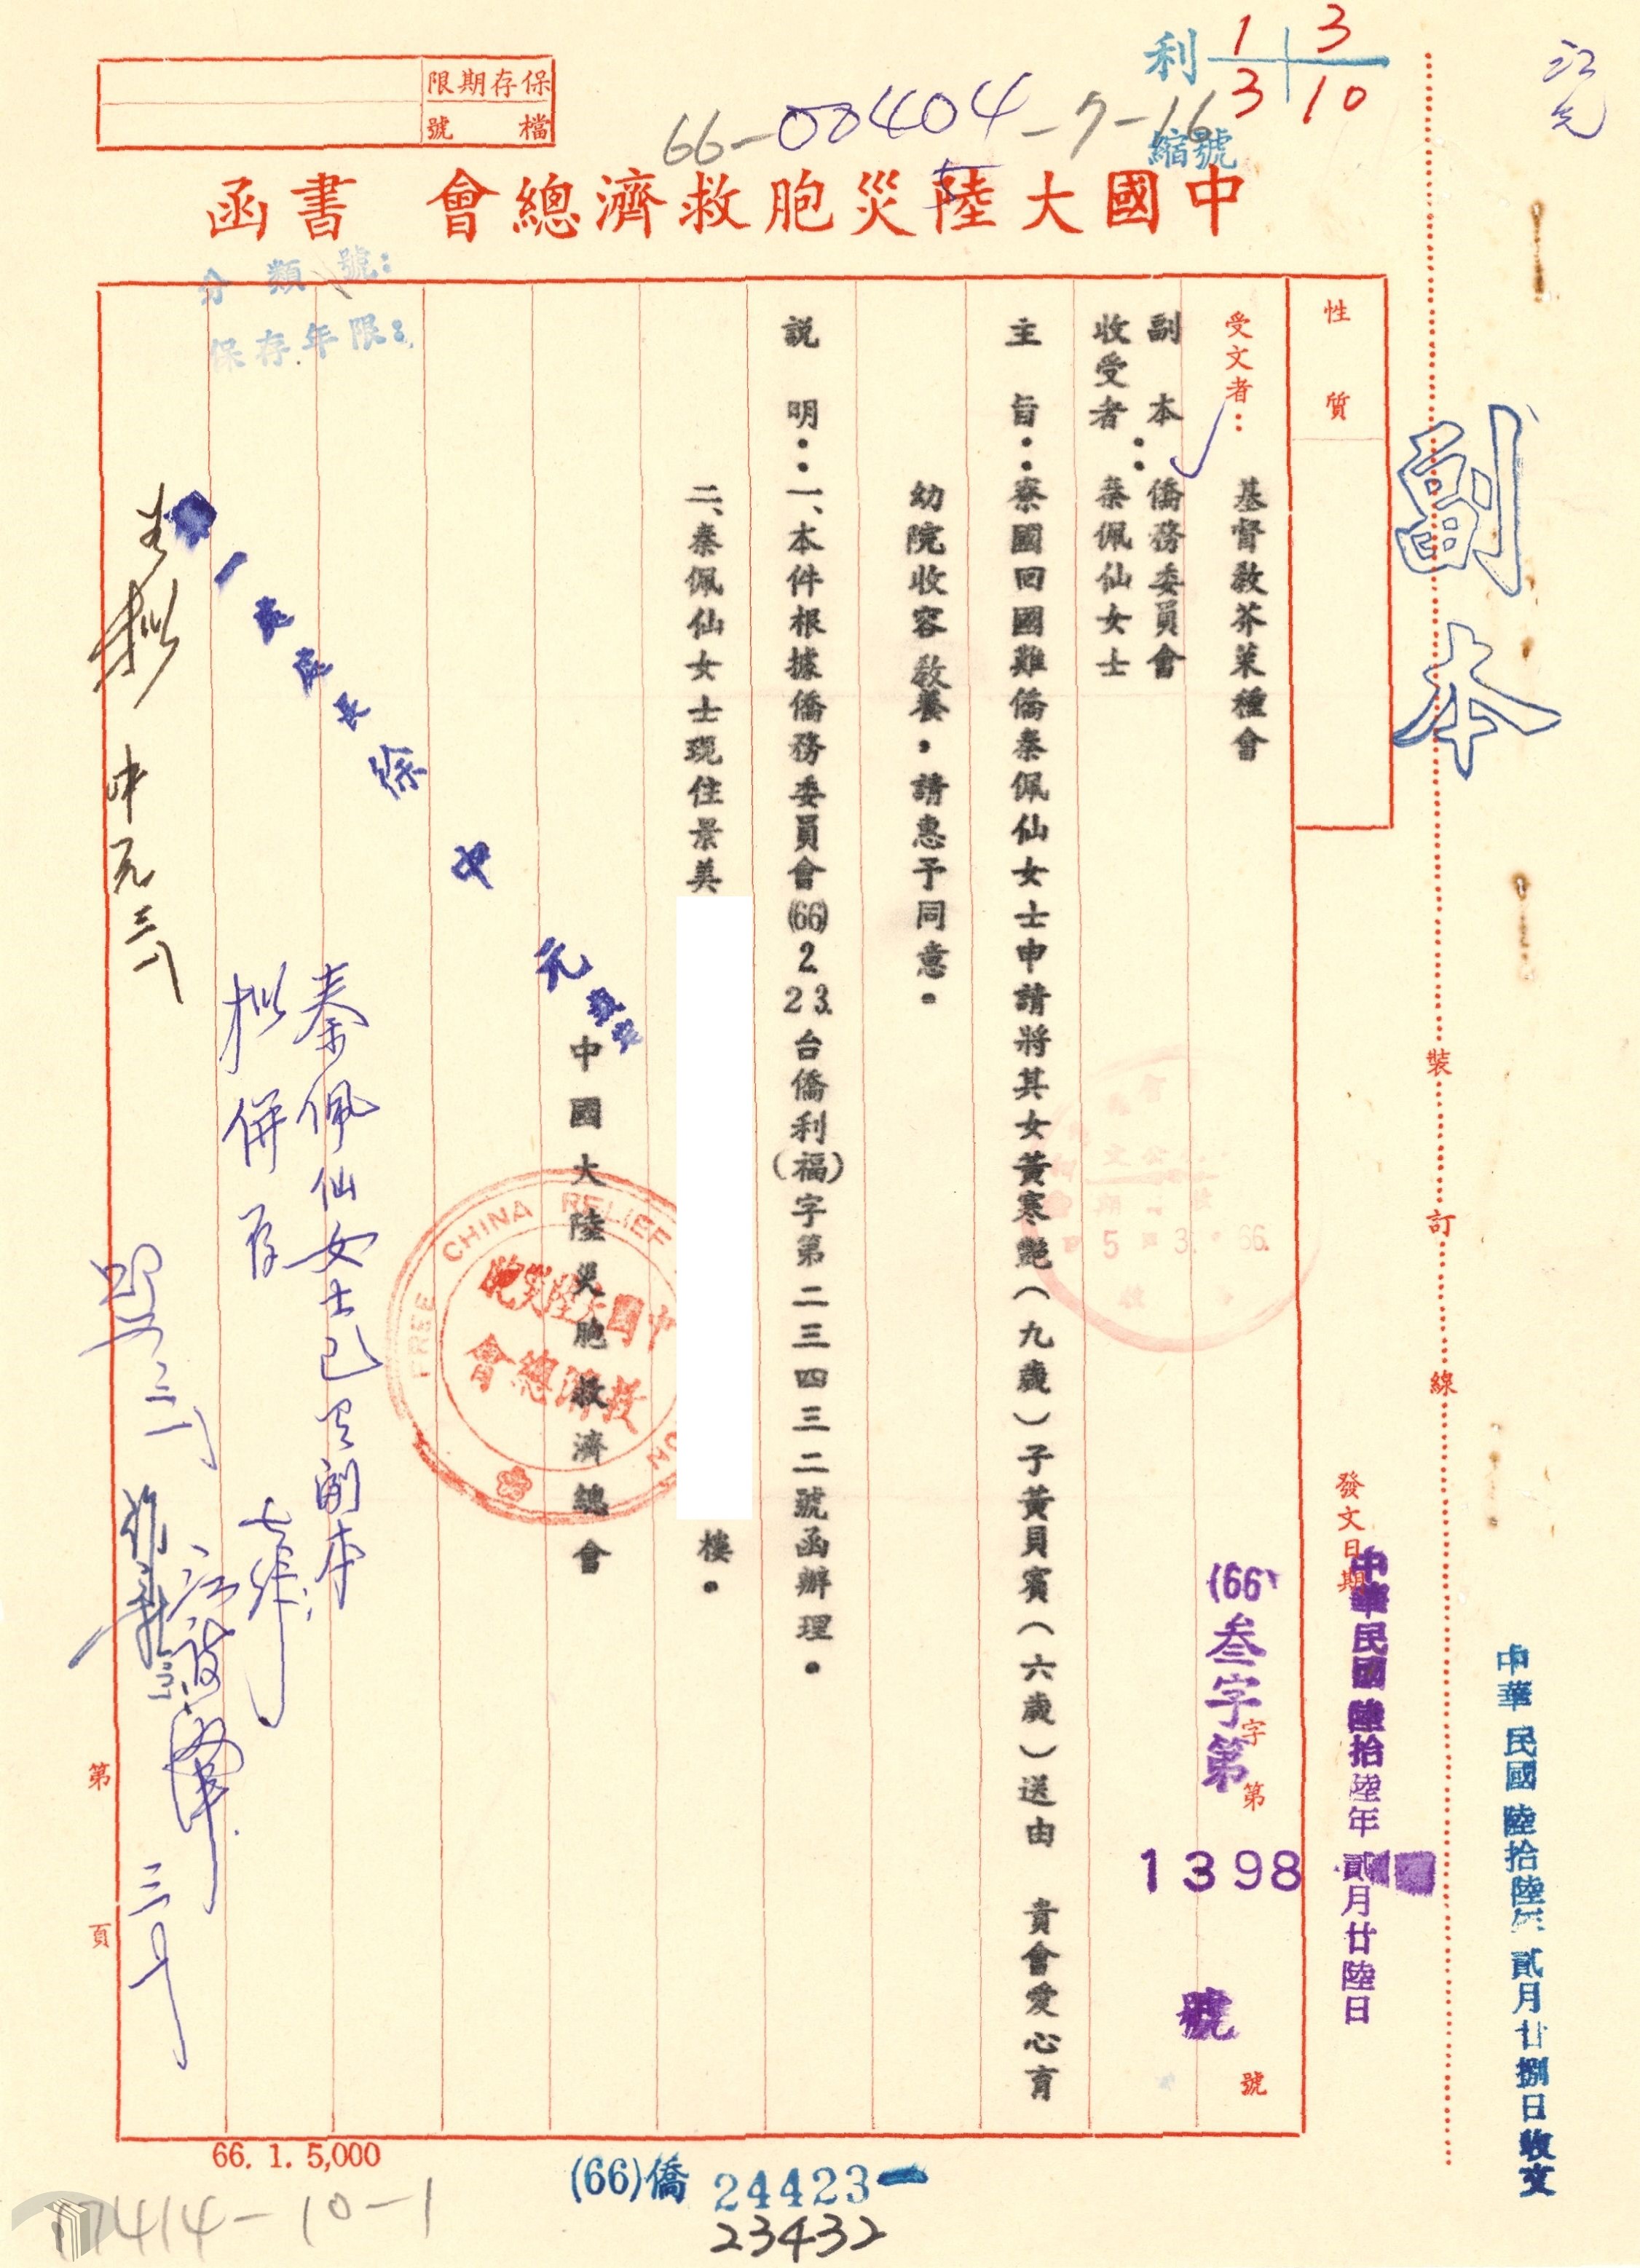 保存期限
檔號
利 1 3
3 10
66-00404-7-16
縮號
中國大陸災胞救濟總會 書函
分類號:
保存年限:
副本
性質
受文者:
基督教芥菜種會
副本收受者:
僑務委員會
秦佩仙女士
主旨:寮國回國難僑秦佩仙女士申請將其女黃寒艷(九歲)子黃貝賓(六歲)送由 貴會愛心育
幼院收容教養,請惠予同意。
說明:一、本件根據僑務委員會(66)2.23.台僑利(福)字第二三四三二號函辦理。
二、秦佩仙女士現住景美
樓。
中國大陸災胞救濟總會
FREE CHINA RELIEF
中國大陸災胞
救濟總會
秦佩仙女士已
擬併存
裝
訂
線
發文日期
中華民國陸拾陸年貳月廿陸日
(66)叁字第
字第
1398
號
號
中華民國陸拾陸年貳月廿捌日收文
5 3 66.
第
頁
66. 1. 5,000
(66)僑 24423
23432
17414-10-1